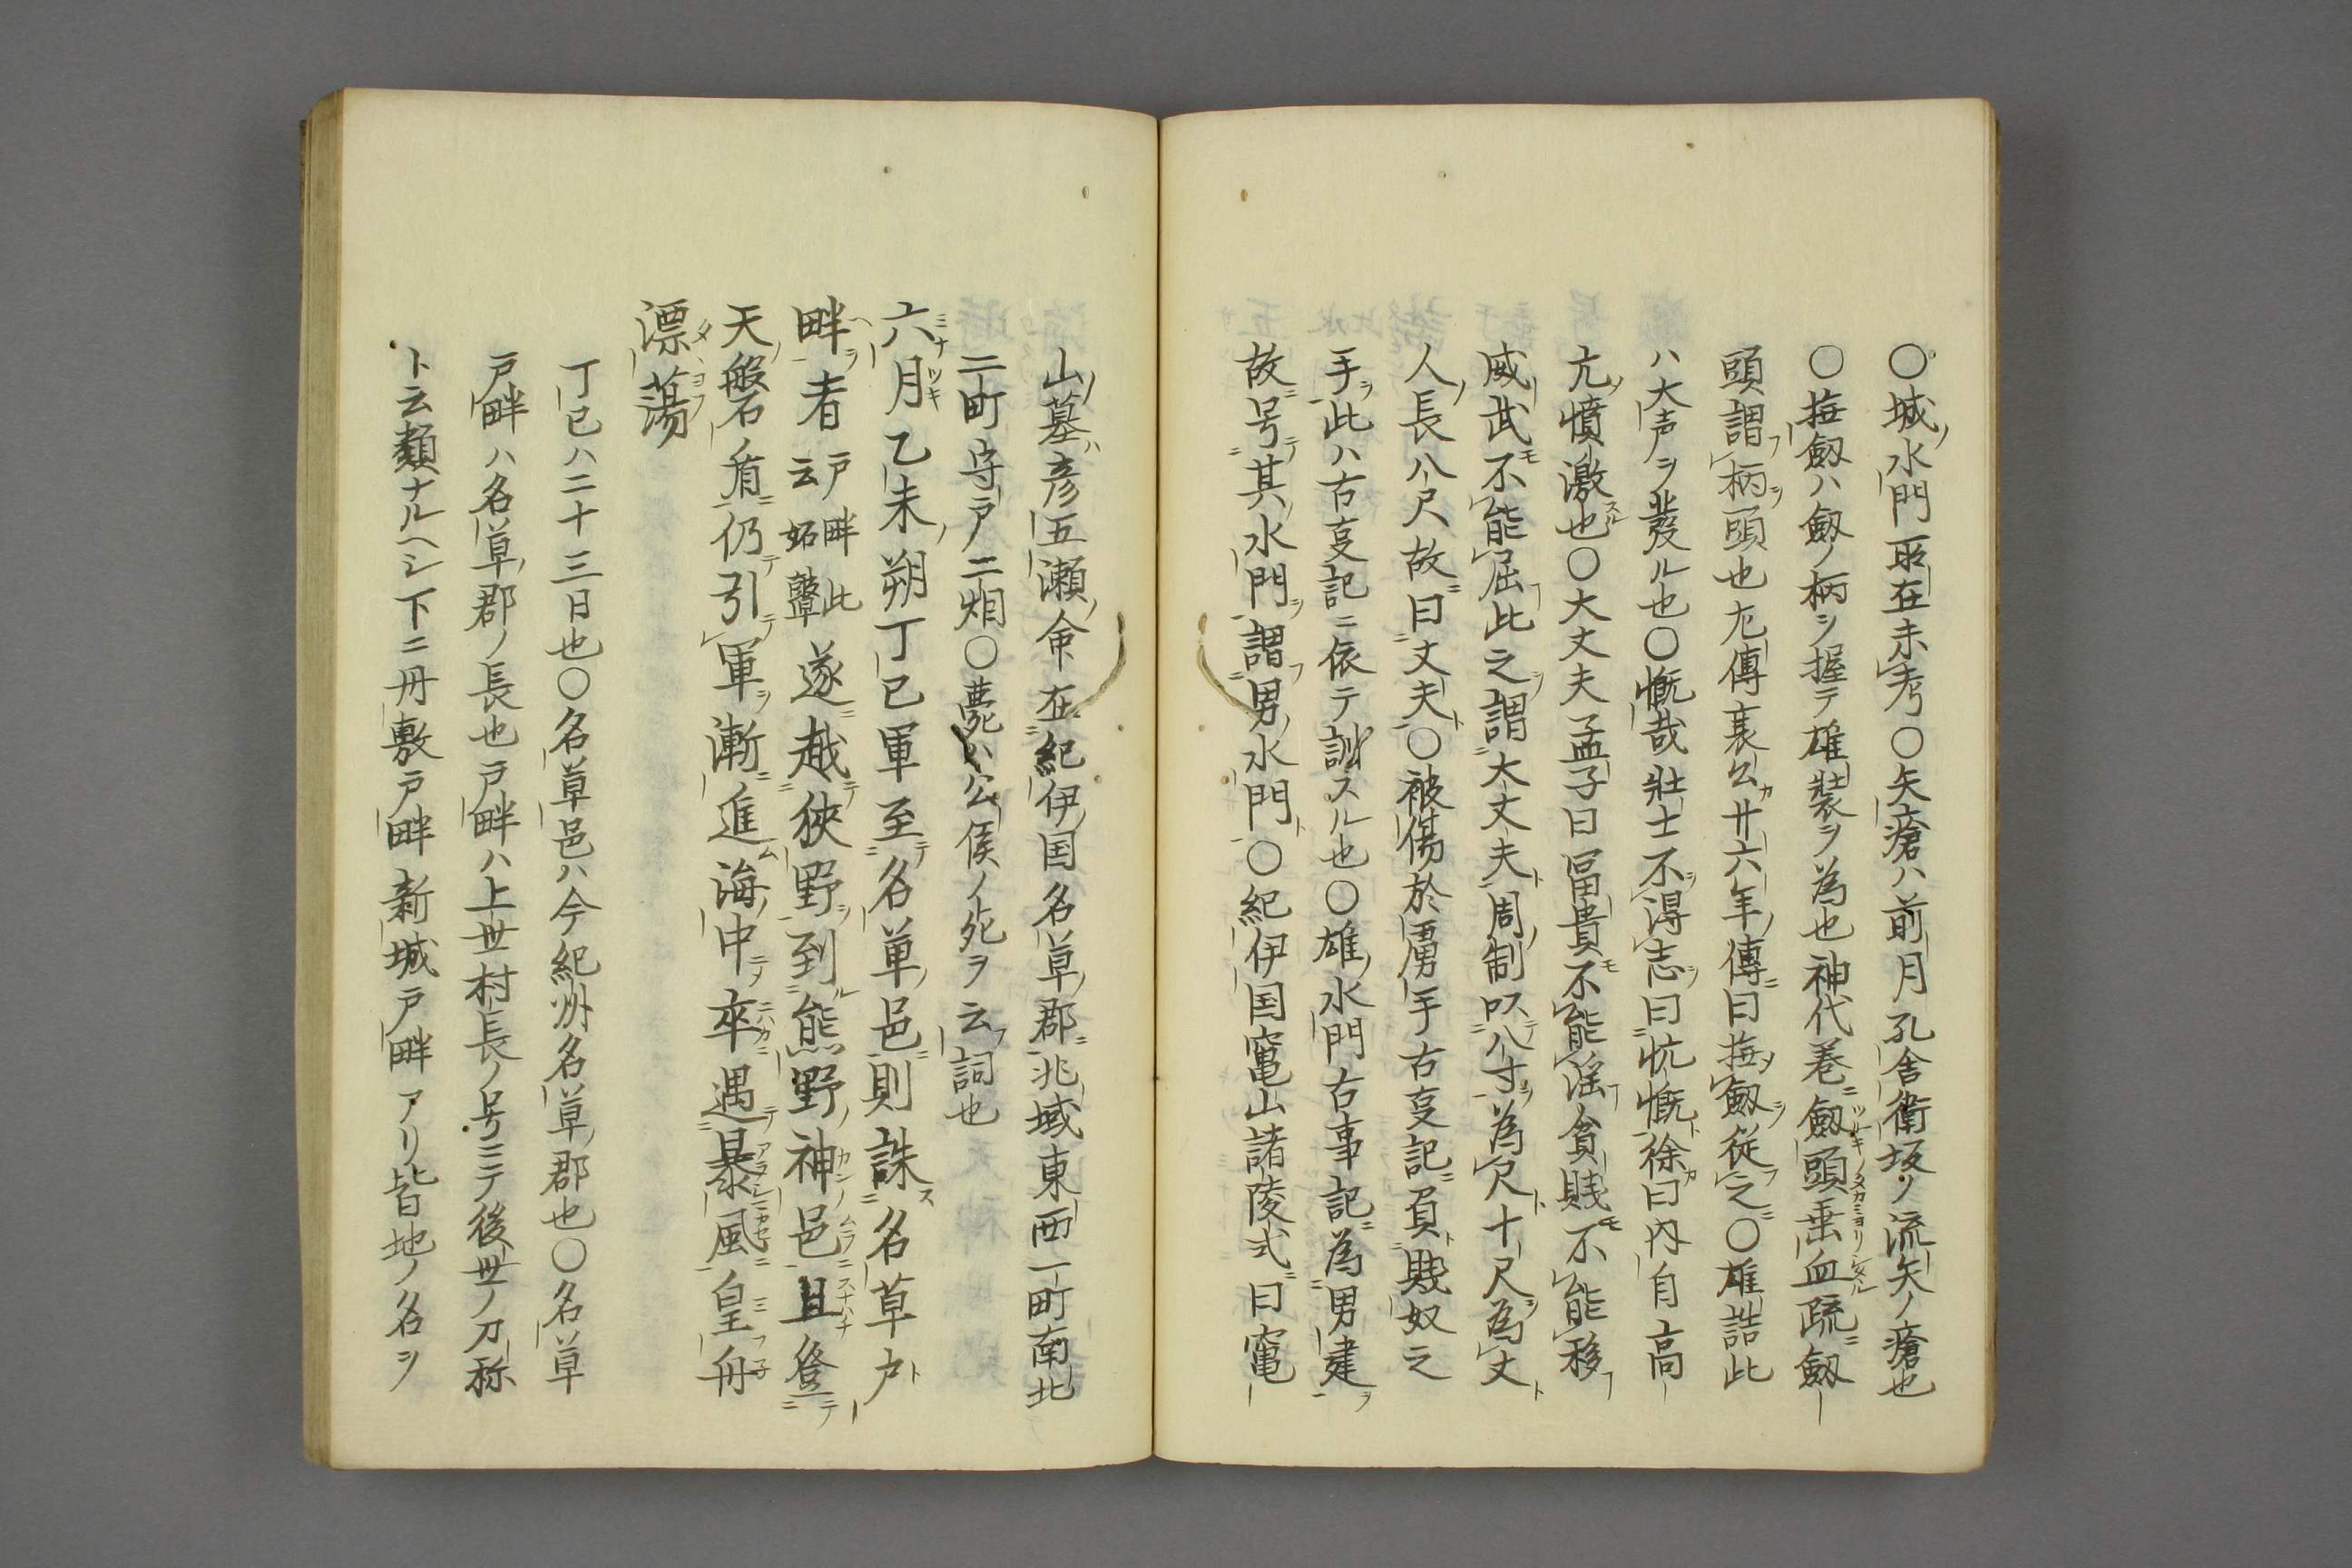 〇城水門所在未考〇矢瘡ハ前月孔舎衛坂ノ流矢ノ瘡也
〇撫劔ハ劔ノ柄ヲ握テ雄裝ヲ為也神代巻劔頭垂血䟽劔
頭謂柄頭也左傳襄公廿六年傳曰撫劔従之〇雄誥此
ハ大声ヲ發ル也〇慨哉壮士不得志曰忼慨徐曰内自高
亢憤激也〇大丈夫孟子曰冨貴不能滛貧賎不能移
威武不能屈此之謂大丈夫周制以八寸為尺十尺為丈
人長八尺故曰丈夫〇被傷於虜手古叓記負賎奴之
手此ハ古叓記ニ依テ訓スル也〇雄水門古事記為男建
故号其水門謂男水門〇紀伊国竃山諸陵式曰竃
山墓彦五瀬命在紀伊国名草郡兆域東西一町南北
二町守戸二烟〇薨ハ公侯ノ死ヲ云詞也
六月乙未朔丁巳軍至名草邑則誅名草戸
畔者戸畔此云妬鼙遂越狹野到熊野神邑且登
天磐盾仍引軍漸進海中卒遇暴風皇舟
漂蕩
丁巳ハ二十三日也〇名草邑ハ今紀州名草郡也〇名草
戸畔ハ名草郡ノ長也戸畔ハ上世村長ノ号ニテ後世ノ刀称
ト云類ナルヘシ下ニ丹敷戸畔新城戸畔アリ皆地ノ名ヲ